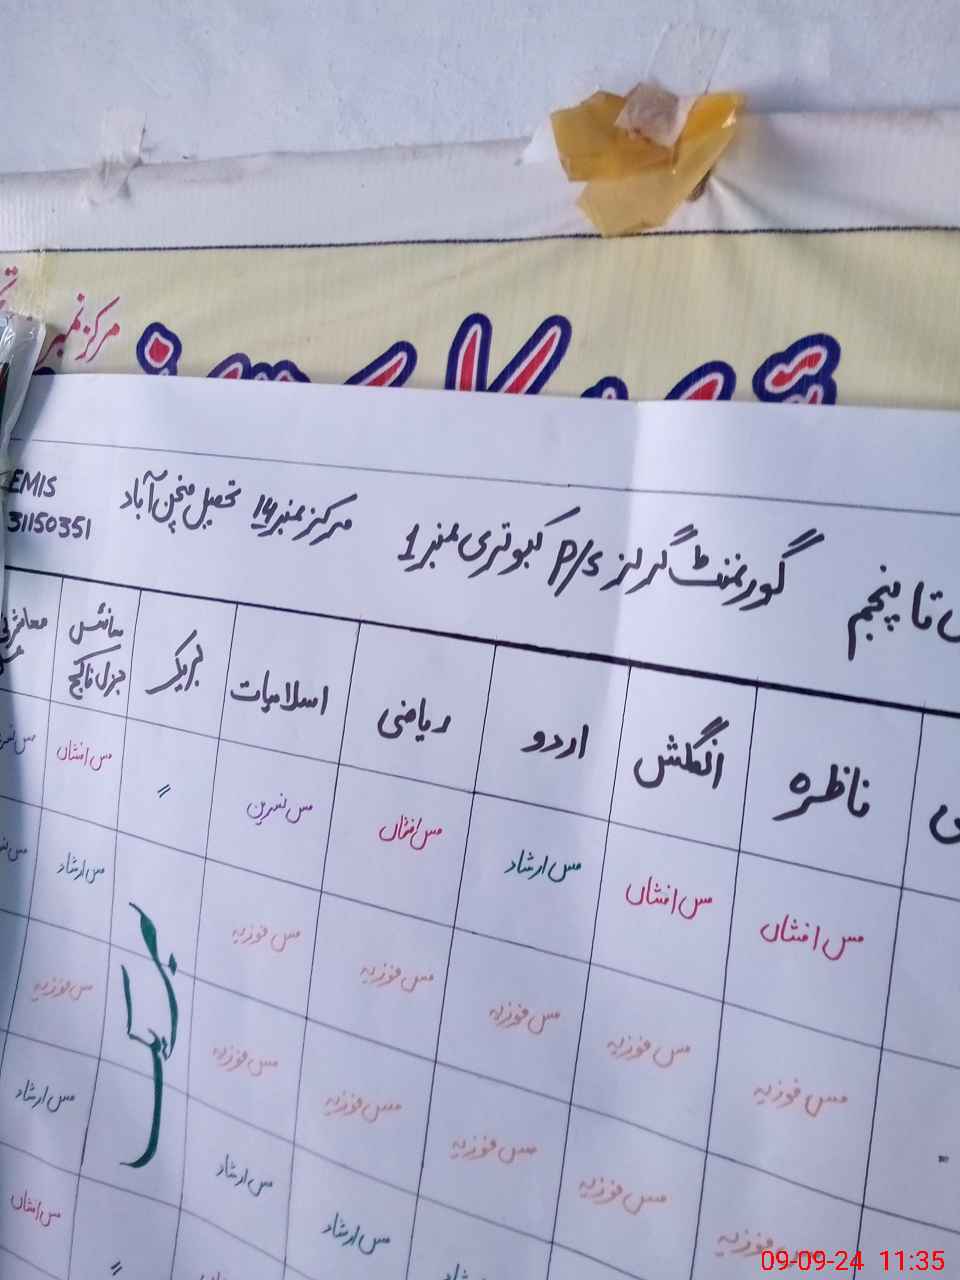 مرکز نمبر
گورنمنٹ گرلز P/S کبوتری نمبر 1 مرکز نمبر 14 تحصیل منچن آباد
تا پنجم
EMIS
31150351
ناظرہ انگلش اردو ریاضی اسلامیات بریک سائنس
جنرل نالج
مس افشاں مس افشاں مس ارشاد مس افشاں مس نسرین 〃 مس افشاں
مس فوزیہ مس فوزیہ مس فوزیہ مس فوزیہ مس فوزیہ مس ارشاد
مس فوزیہ مس فوزیہ مس فوزیہ مس فوزیہ مس فوزیہ مس فوزیہ
مس ارشاد مس ارشاد مس ارشاد
بریک
〃 مس افشاں
09-09-24 11:35